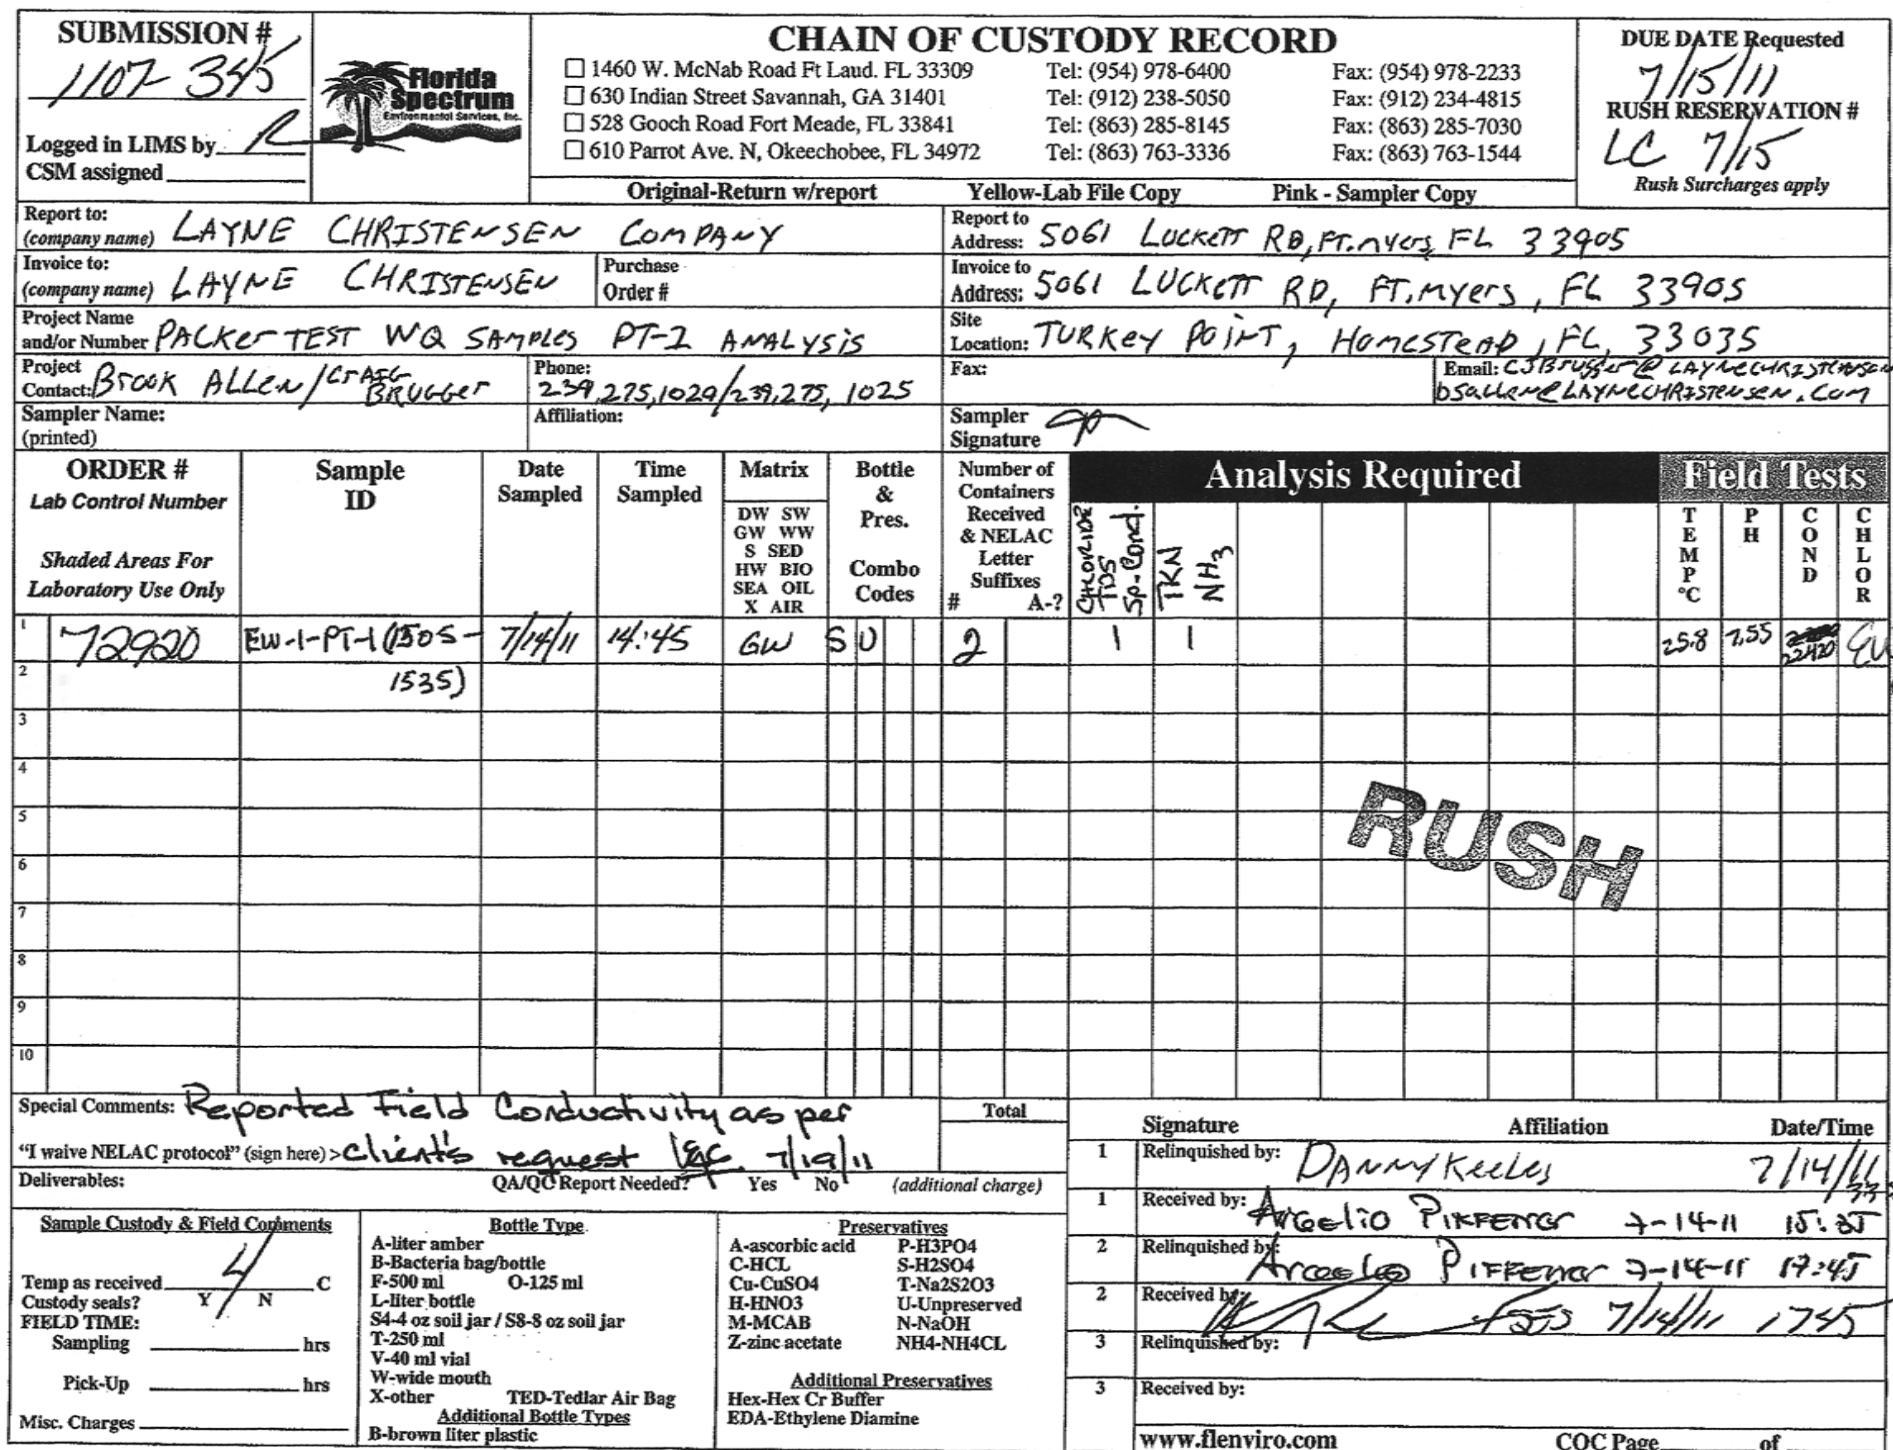 SUBMISSION #
1107-345
Logged in LIMS by
CSM assigned
Florida
Spectrum
Environmental Services, Inc.
CHAIN OF CUSTODY RECORD
1460 W. McNab Road Ft Laud. FL 33309 Tel: (954) 978-6400 Fax: (954) 978-2233
630 Indian Street Savannah, GA 31401 Tel: (912) 238-5050 Fax: (912) 234-4815
528 Gooch Road Fort Meade, FL 33841 Tel: (863) 285-8145 Fax: (863) 285-7030
610 Parrot Ave. N, Okeechobee, FL 34972 Tel: (863) 763-3336 Fax: (863) 763-1544
Original-Return w/report Yellow-Lab File Copy Pink - Sampler Copy
DUE DATE Requested
7/15/11
RUSH RESERVATION #
LC 7/15
Rush Surcharges apply
Report to:
(company name) LAYNE CHRISTENSEN COMPANY
Report to
Address: 5061 LUCKETT RD, FT. myers, FL 33905
Invoice to:
(company name) LAYNE CHRISTENSEN
Purchase
Order #
Invoice to
Address: 5061 LUCKETT RD, FT. myers, FL 33905
Project Name
and/or Number PACKer TEST WQ SAMPLES PT-1 ANALYSIS
Site
Location: TURKEY POINT, HOMESTEAD, FL, 33035
Project
Contact: Brook ALLEN/CrAIG
BRUGGer
Phone:
239.275.1029/239.275.1025
Fax:
Email: CJBrugger@LAYNECHRISTENSEN
bsallen@LAYNECHRISTENSEN.Com
Sampler Name:
(printed)
Affiliation:
Sampler
Signature
ORDER #
Lab Control Number
Shaded Areas For
Laboratory Use Only
Sample
ID
Date
Sampled
Time
Sampled
Matrix
DW SW
GW WW
S SED
HW BIO
SEA OIL
X AIR
Bottle
&
Pres.
Combo
Codes
Number of
Containers
Received
& NELAC
Letter
Suffixes
# A-?
Analysis Required
CHLORIDE
TDS
Sp-Cond.
TKN
NH3
Field Tests
TEMP °C
PH
COND
CHLOR
1 72920 EW-1-PT-1 (1505- 7/14/11 14:45 GW S U 2 1 1 25.8 7.55 22420
2 1535)
3
4
5
RUSH
6
7
8
9
10
Special Comments: Reported Field Conductivity as per
"I waive NELAC protocol" (sign here) > client's request 7/19/11
Total
Deliverables: QA/QC Report Needed? Yes No (additional charge)
Sample Custody & Field Comments
Temp as received 4 C
Custody seals? Y N
FIELD TIME:
Sampling hrs
Pick-Up hrs
Misc. Charges
Bottle Type
A-liter amber
B-Bacteria bag/bottle
F-500 ml O-125 ml
L-liter bottle
S4-4 oz soil jar / S8-8 oz soil jar
T-250 ml
V-40 ml vial
W-wide mouth
X-other TED-Tedlar Air Bag
Additional Bottle Types
B-brown liter plastic
Preservatives
A-ascorbic acid P-H3PO4
C-HCL S-H2SO4
Cu-CuSO4 T-Na2S2O3
H-HNO3 U-Unpreserved
M-MCAB N-NaOH
Z-zinc acetate NH4-NH4CL
Additional Preservatives
Hex-Hex Cr Buffer
EDA-Ethylene Diamine
Signature Affiliation Date/Time
1 Relinquished by: DANNY Keeles 7/14/11
1 Received by: Argelio PIFFERRER 7-14-11 15:35
2 Relinquished by: Argelio PIFFERRER 7-14-11 17:45
2 Received by: 7/14/11 1745
3 Relinquished by:
3 Received by:
www.flenviro.com COC Page of